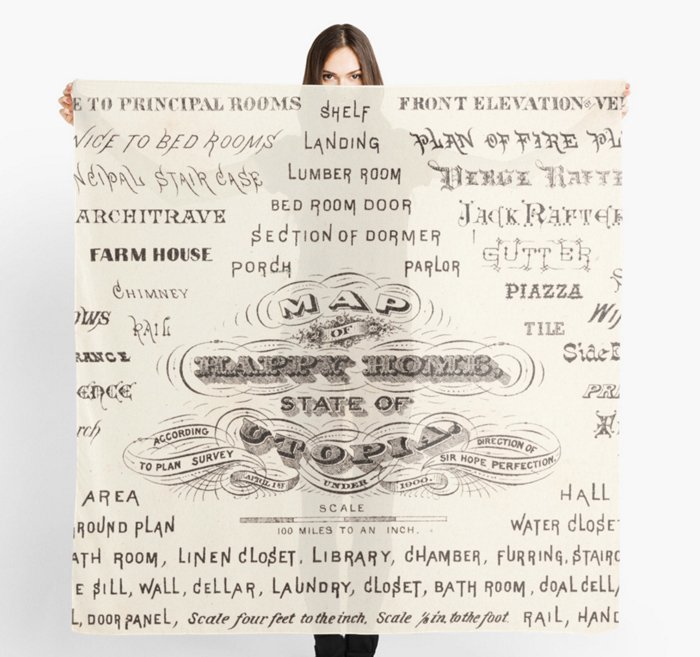 E TO PRINCIPAL ROOMS
SHELF
FRONT ELEVATION
TO BED ROOMS
LANDING
PLAN OF FIRE
STAIR CASE
LUMBER ROOM
VERGE
ARCHITRAVE
BED ROOM DOOR
JACK RAFTER
FARM HOUSE
SECTION OF DORMER
GUTTER
PORCH
PARLOR
CHIMNEY
PIAZZA
RAIL
TILE
MAP
OF
HAPPY HOME,
STATE OF
UTOPIA.
ACCORDING
TO PLAN SURVEY
DIRECTION OF
SIR HOPE PERFECTION.
APRIL 1ST
UNDER
1900.
AREA
HALL
SCALE
ROUND PLAN
100 MILES TO AN INCH.
WATER CLOSET
ATH ROOM, LINEN CLOSET, LIBRARY, CHAMBER, FURRING, STAIRC
E SILL, WALL, CELLAR, LAUNDRY, CLOSET, BATH ROOM, COAL CELL
L, DOOR PANEL, Scale four feet to the inch, Scale ⅛ in. to the foot. RAIL, HAND